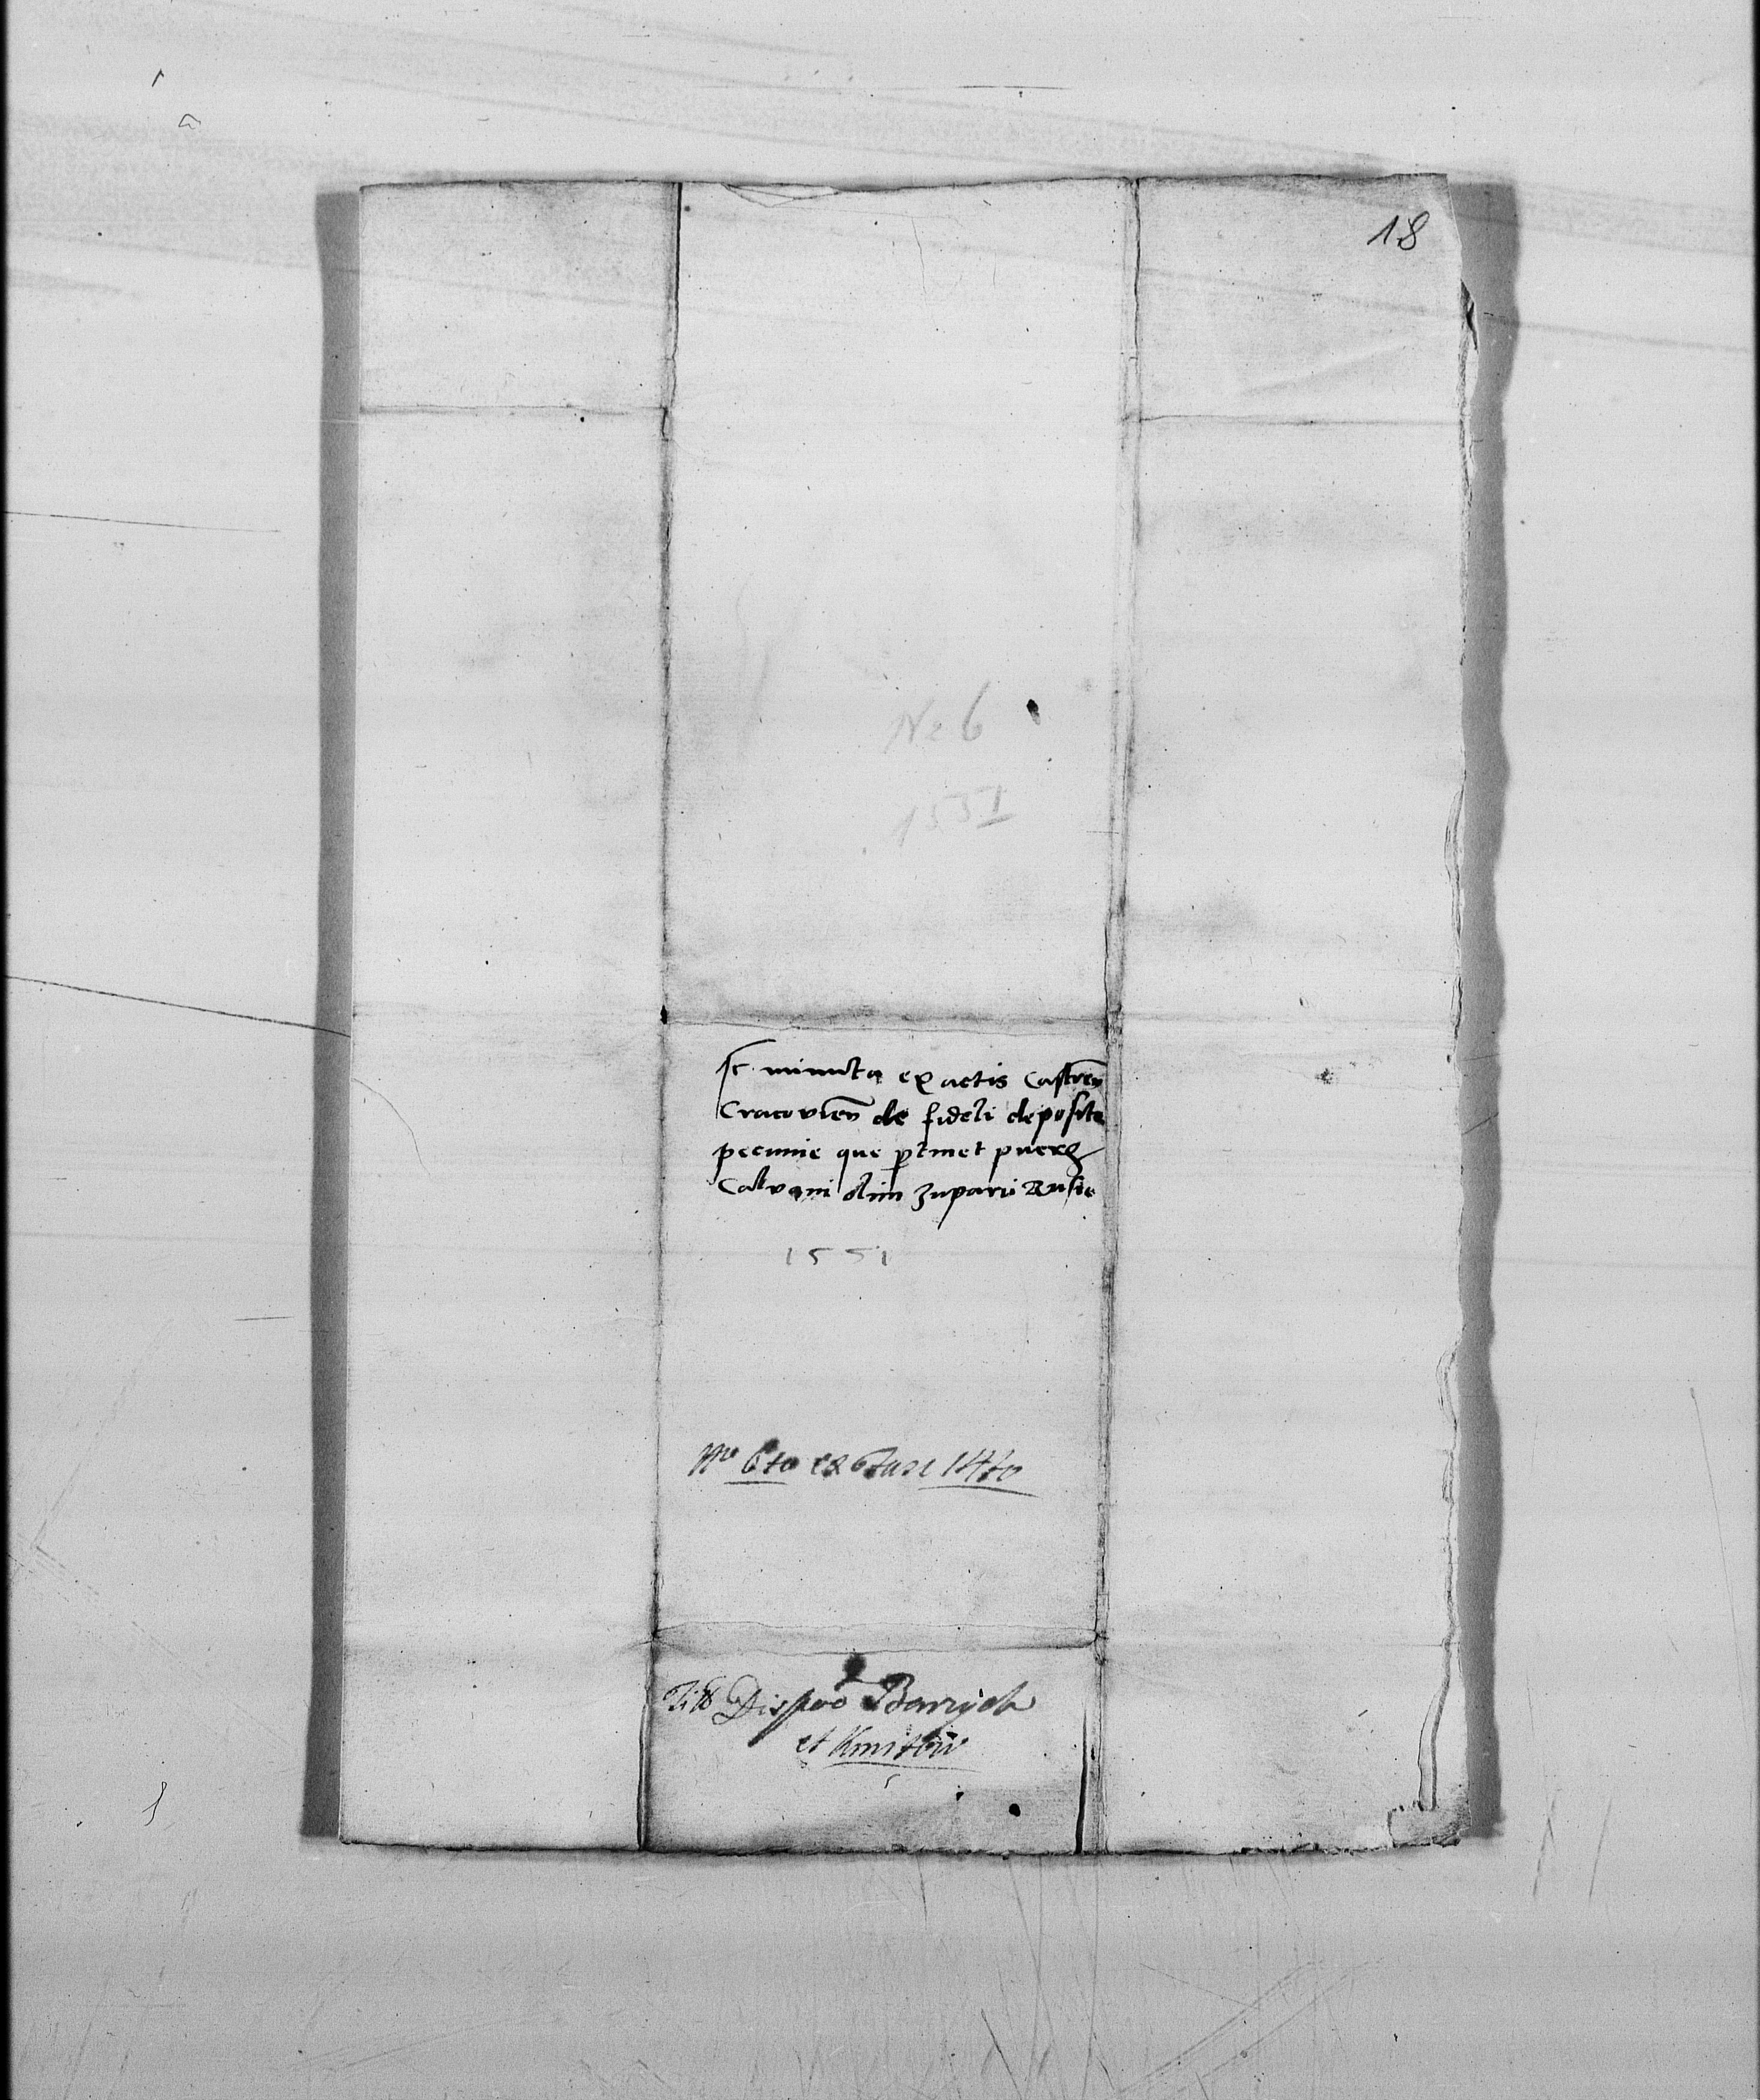 18
No 6
1551
minuta ex actis Castren
Cracovien de fideli deposito
pecunie que ptinet puerꝝ
Calvani olim zupari Rusie
1551
No 6to ex Fasc 14to
Dispoo Barzych
et Kmitow